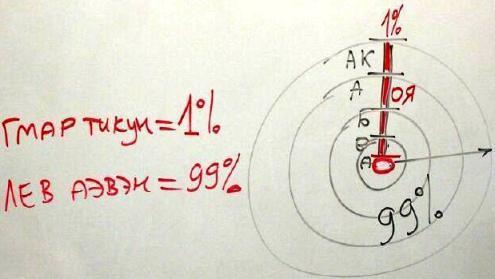 ГМАР ТИКУН = 1%
ЛЕВ АЭВЭН = 99%
1%
АК
А ОЯ
Б
В
А
99%